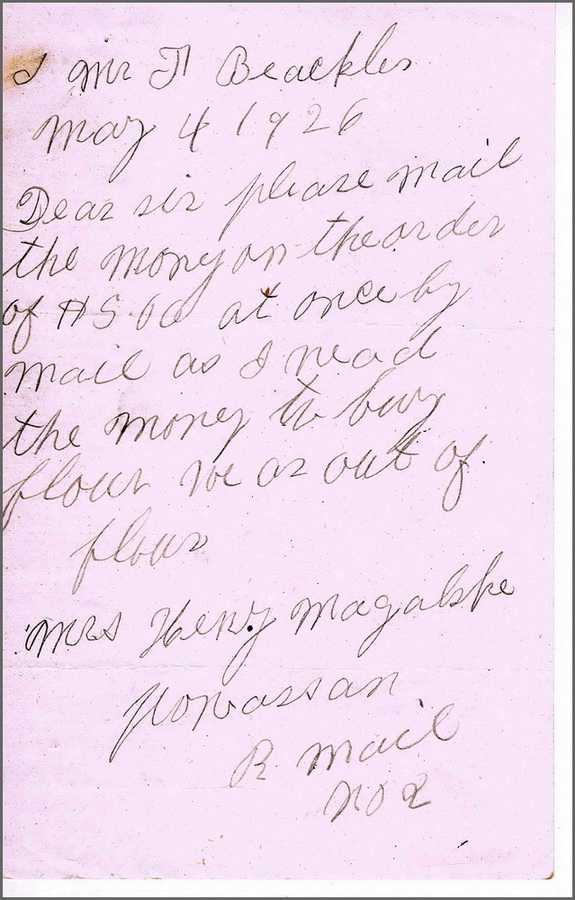 Mr Beackles
May 4 1926
Dear sir please mail
the money on the order
of at once by
mail as I nead
the money to buy
flour we ar out of
flour
Mrs Henry Magalske
powassan
R mail
no 2